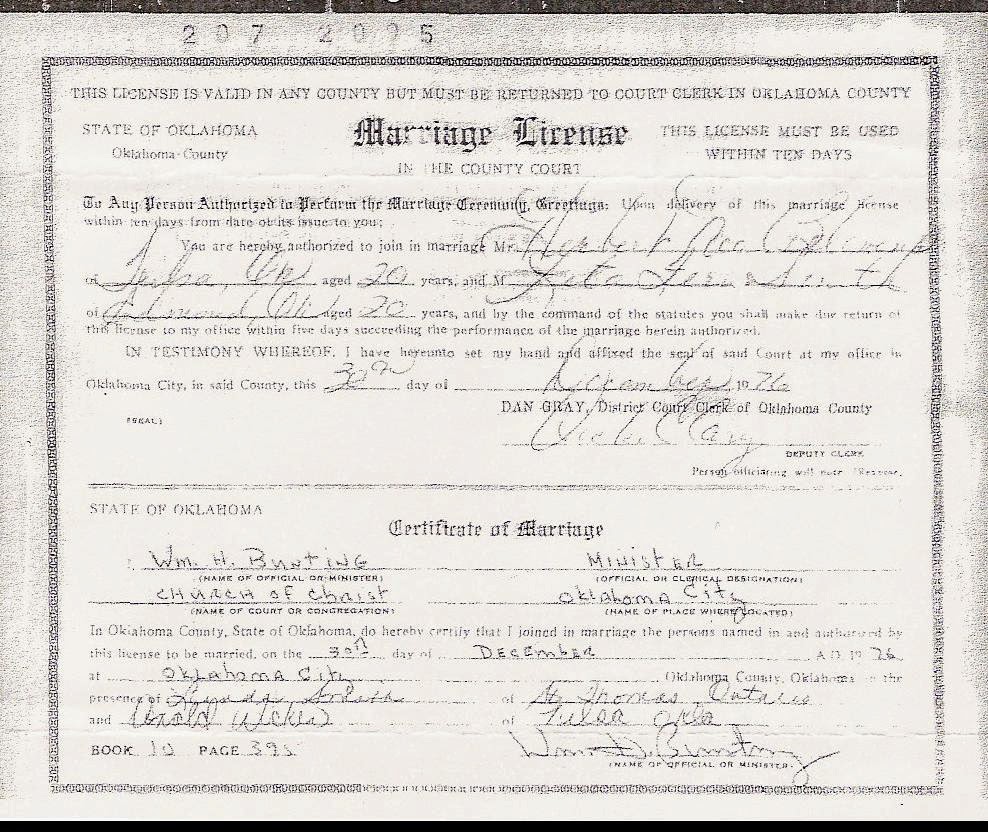 207 2095
THIS LICENSE IS VALID IN ANY COUNTY BUT MUST BE RETURNED TO COURT CLERK IN OKLAHOMA COUNTY
STATE OF OKLAHOMA Marriage License THIS LICENSE MUST BE USED
Oklahoma County WITHIN TEN DAYS
IN THE COUNTY COURT
To Any Person Authorized to Perform the Marriage Ceremony, Greetings: Upon delivery of this marriage license
within ten days from date of its issue to you;
You are hereby authorized to join in marriage Mr. Herbert
of Tulsa, Ok aged 20 years, and M Leta Fern Smith
of Edmond, Ok aged 20 years, and by the command of the statutes you shall make due return of
this license to my office within five days succeeding the performance of the marriage herein authorized.
IN TESTIMONY WHEREOF, I have hereunto set my hand and affixed the seal of said Court at my office in
Oklahoma City, in said County, this 30th day of December 1976
DAN GRAY, District Court Clerk of Oklahoma County
(SEAL)
DEPUTY CLERK
Person officiating will note Reverse.
STATE OF OKLAHOMA
Certificate of Marriage
Wm. H. Bunting Minister
(NAME OF OFFICIAL OR MINISTER) (OFFICIAL OR CLERICAL DESIGNATION)
Church of Christ Oklahoma City
(NAME OF COURT OR CONGREGATION) (NAME OF PLACE WHERE LOCATED)
In Oklahoma County, State of Oklahoma, do hereby certify that I joined in marriage the persons named in and authorized by
this license to be married, on the 30th day of December A.D. 1976
at Oklahoma City Oklahoma County, Oklahoma in the
presence of Lynda Smith of St. Thomas Ontario
and of Tulsa Okla
BOOK 10 PAGE 395
Wm. H. Bunting
(NAME OF OFFICIAL OR MINISTER)